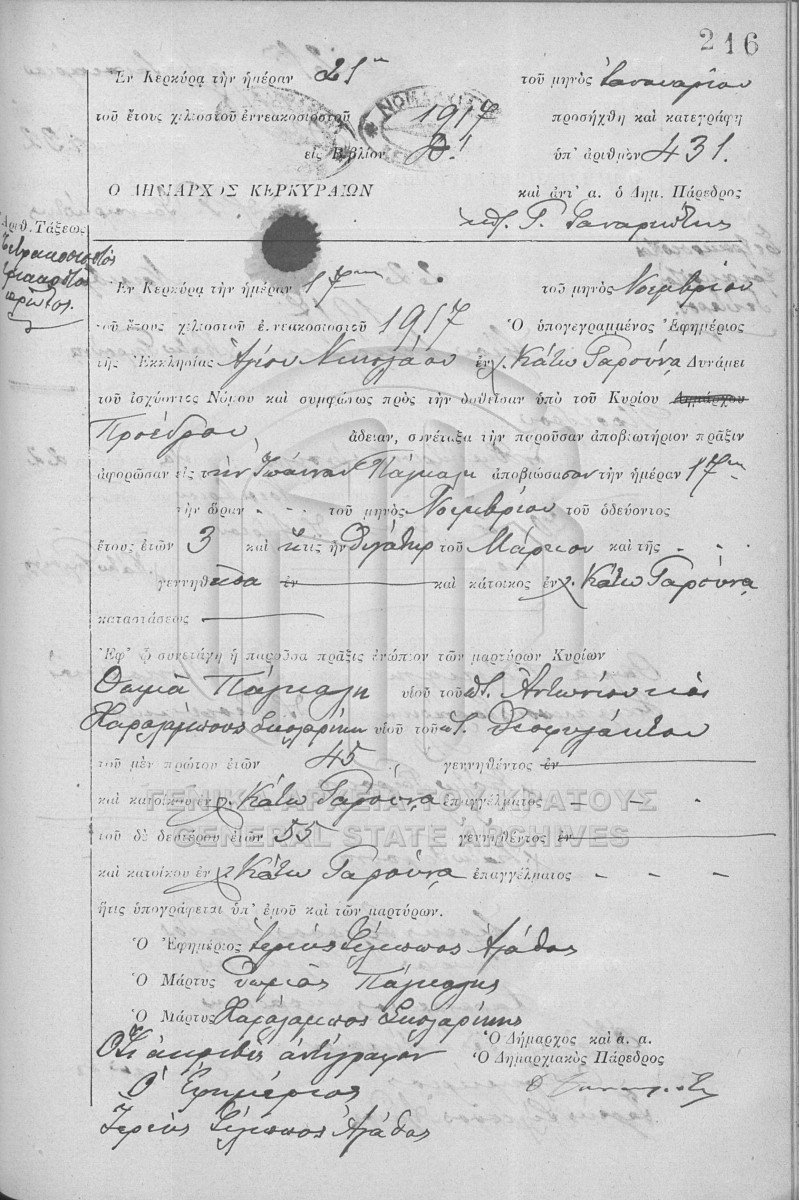 216
Ἐν Κερκύρᾳ τὴν ἡμέραν 21ην τοῦ μηνὸς Ἰανουαρίου
τοῦ ἔτους χιλιοστοῦ ἐννεακοσιοστοῦ 1917 προσήχθη καὶ κατεγράφη
εἰς Βιβλίον Α! ὑπ' ἀριθμὸν 431.
Ο ΔΗΜΑΡΧΟΣ ΚΕΡΚΥΡΑΙΩΝ καὶ ἀντ' α. ὁ Δημ. Πάρεδρος
Ἀριθ. Τάξεως
Τετρακοσιοστὸς
τριακοστὸς
πρῶτος.
Ἐν Κερκύρᾳ τὴν ἡμέραν 17ην τοῦ μηνὸς Νοεμβρίου
τοῦ ἔτους χιλιοστοῦ ἐννεακοσιοστοῦ 1917 Ὁ ὑπογεγραμμένος Ἐφημέριος
τῆς Ἐκκλησίας Ἁγίου Νικολάου ἐν χ. Κάτω Γαρούνα Δυνάμει
τοῦ ἰσχύοντος Νόμου καὶ συμφώνως πρὸς τὴν δοθεῖσαν ὑπὸ τοῦ Κυρίου Δημάρχου
Προέδρου ἄδειαν, συνέταξα τὴν παροῦσαν ἀποβιωτήριον πρᾶξιν
ἀφορῶσαν εἰς τὴν Ἰωάνναν Πάγκαλη ἀποβιώσασαν τὴν ἡμέραν 17ην
τὴν ὥραν - - τοῦ μηνὸς Νοεμβρίου τοῦ ὁδεύοντος
ἔτους ἐτῶν 3 καὶ ἥτις ἦν θυγάτηρ τοῦ Μάρκου καὶ τῆς - -
γεννηθεῖσα ἐν καὶ κάτοικος ἐν χ. Κάτω Γαρούνα
καταστάσεως
Ἐφ' ᾧ συνετάγη ἡ παροῦσα πρᾶξις ἐνώπιον τῶν μαρτύρων Κυρίων
Θωμᾶ Πάγκαλη υἱοῦ τοῦ π. Ἀντωνίου καὶ
Χαραλάμπους Σκολαρίκη υἱοῦ τοῦ π. Θεοφυλάκτου
τοῦ μὲν πρώτου ἐτῶν 45 γεννηθέντος ἐν
καὶ κατοίκου ἐν χ. Κάτω Γαρούνα ἐπαγγέλματος - - -
τοῦ δὲ δευτέρου ἐτῶν 55 γεννηθέντος ἐν
καὶ κατοίκου ἐν χ. Κάτω Γαρούνα ἐπαγγέλματος - - -
ἥτις ὑπογράφεται ὑπ' ἐμοῦ καὶ τῶν μαρτύρων.
Ὁ Ἐφημέριος Ἱερεὺς Φίλιππος Ἀγάθος
Ὁ Μάρτυς Θωμᾶς Πάγκαλης
Ὁ Μάρτυς Χαράλαμπος Σκολαρίκης
Ὅτι ἀκριβὲς ἀντίγραφον
Ὁ Δήμαρχος καὶ ἀ. ἀ.
Ὁ Δημαρχιακὸς Πάρεδρος
Ὁ Ἐφημέριος
Ἱερεὺς Φίλιππος Ἀγάθος
ΓΕΝΙΚΑ ΑΡΧΕΙΑ ΤΟΥ ΚΡΑΤΟΥΣ
GENERAL STATE ARCHIVES